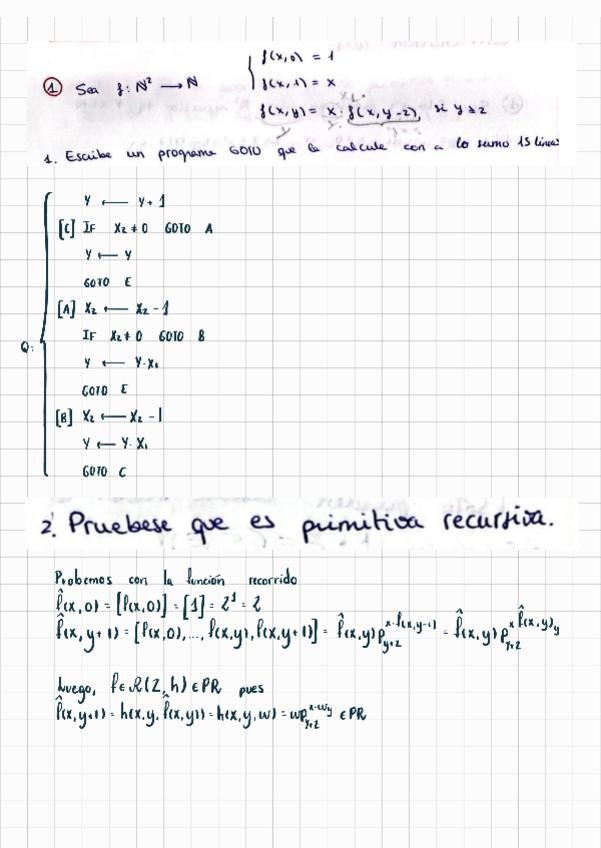 f(x,0) = 1
① Sea f: ℕ² → ℕ f(x,1) = x
f(x,y) = x · f(x, y-2), si y ≥ 2
1. Escribe un programa GOTO que la calcule con a lo sumo 15 líneas
Y ← Y+1
[C] IF X₂ ≠ 0 GOTO A
Y ← Y
GOTO E
[A] X₂ ← X₂ - 1
IF X₂ ≠ 0 GOTO B
Q:
Y ← Y·X₁
GOTO E
[B] X₂ ← X₂ - 1
Y ← Y·X₁
GOTO C
2. Pruebese que es primitiva recursiva.
Probemos con la función recorrido
f̂(x,0) = [f(x,0)] = [1] = 2¹ = 2
f̂(x,y+1) = [f(x,0),..., f(x,y), f(x,y+1)] = f̂(x,y) p_{y+2}^{x·f(x,y-1)} = f̂(x,y) p_{y+2}^{x f̂(x,y)_y}
Luego, f ∈ R(2,h) ∈ PR pues
f̂(x,y+1) = h(x,y, f̂(x,y)) = h(x,y,w) = wp_{y+2}^{x·w_y} ∈ PR